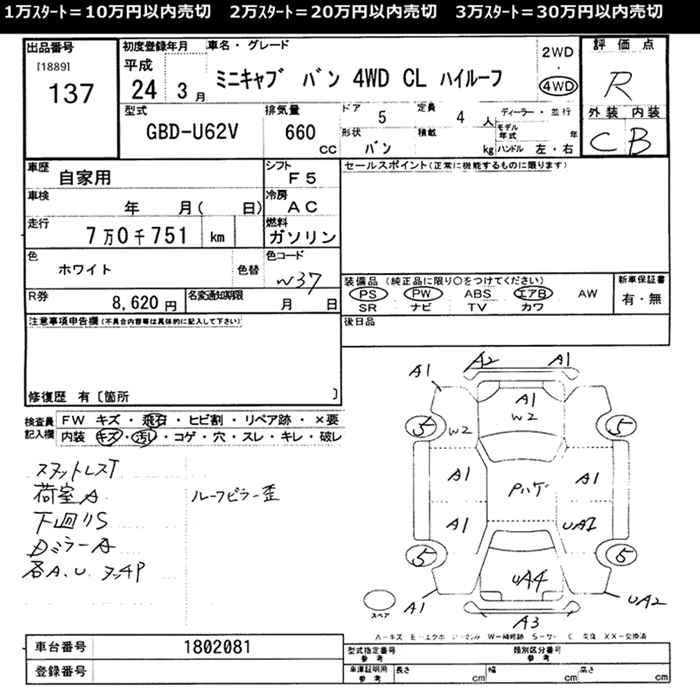 1万ｽﾀｰﾄ＝10万円以内売切　2万ｽﾀｰﾄ＝20万円以内売切　3万ｽﾀｰﾄ＝30万円以内売切
出品番号
[1889]
137
初度登録年月
平成
24 3月
車名・グレード
ミニキャブ バン 4WD CL ハイルーフ
2WD
・
4WD
評価点
R
外装 内装
C B
型式
GBD-U62V
排気量
660 cc
ドア 5
定員 4 人
ディーラー・並行
形状 バン
積載 kg
モデル年式 年
ハンドル 左・右
車歴
自家用
シフト
F5
セールスポイント(正常に機能するものに限ります)
車検
年 月( 日)
冷房
AC
走行
7万0千751 km
燃料
ガソリン
色
ホワイト
色替
色コード
W37
装備品 (純正品に限り○をつけてください)
PS PW ABS エアB AW
SR ナビ TV カワ
新車保証書
有・無
R券
8,620円
名変通知期限
月 日
後日品
注意事項申告欄(不具合内容等は具体的に記入して下さい)
修復歴 有〔箇所 〕
検査員記入欄
FW キズ・飛石・ヒビ割・リペア跡・×要
内装 キズ・汚レ・コゲ・穴・スレ・キレ・破レ
荷室A
下回りS
DミラーA
ルーフピラー歪
A1 A2 A1
A1
W2
W2
5 5
A1 A1
A1 UA1
5 5
UA4
A1 UA2
A3
スペア
車台番号
1802081
登録番号
型式指定番号
参考
類別区分番号
参考
車庫証明用
参考
長さ cm
幅 cm
高さ cm